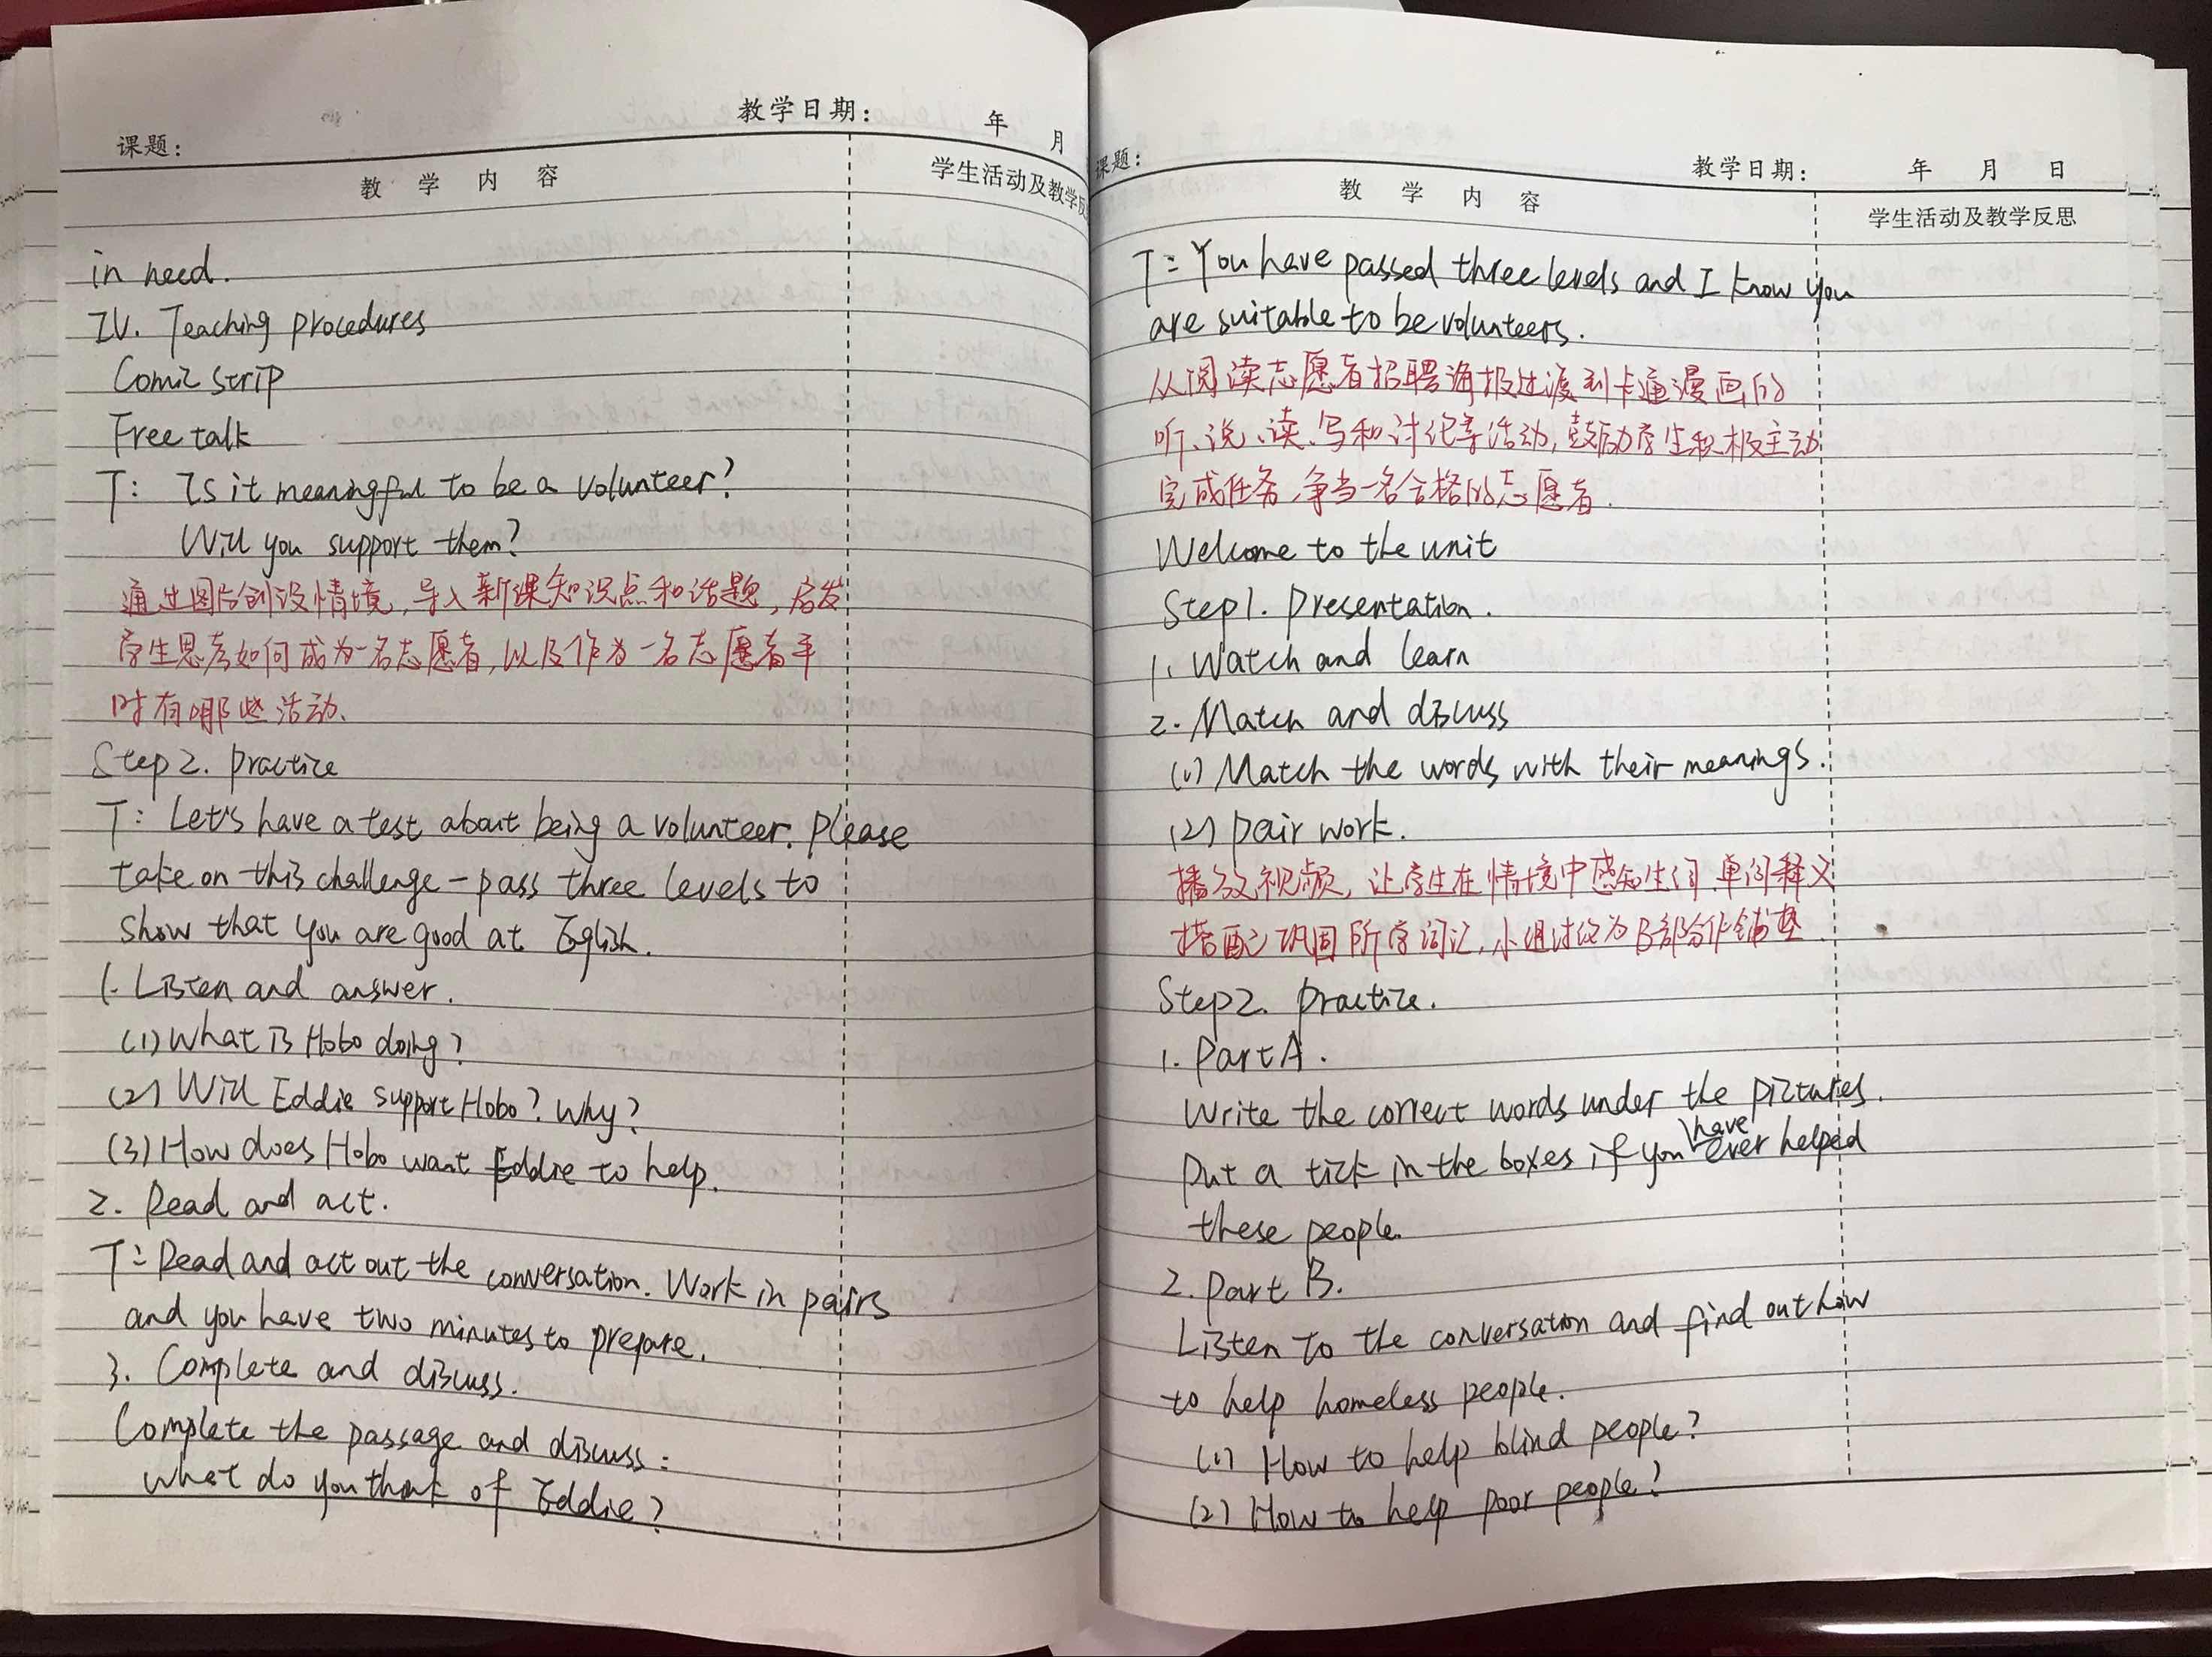 教学日期： 年 月
课题：
教 学 内 容
学生活动及教学反
in need.
IV. Teaching procedures
Comic strip
Free talk
T: Is it meaningful to be a volunteer?
Will you support them?
通过图片创设情境，导入新课知识点和话题，启发
学生思考如何成为一名志愿者，以及作为一名志愿者平
时有哪些活动、
Step 2. Practice
T: Let's have a test about being a volunteer. Please
take on this challenge - pass three levels to
show that you are good at Eglish.
1. Listen and answer.
(1) What is Hobo doing?
(2) Will Eddie support Hobo? Why?
(3) How does Hobo want Eddie to help.
2. Read and act.
T: Read and act out the conversation. Work in pairs
and you have two minutes to prepare.
3. Complete and discuss.
Complete the passage and discuss:
What do you think of Eddie?
课题：
教学日期： 年 月 日
教 学 内 容
学生活动及教学反思
T: You have passed three levels and I know you
are suitable to be volunteers.
从阅读志愿者招聘海报过渡到卡通漫画的
听、说、读、写和讨论等活动，鼓励学生积极主动
完成任务，争当一名合格的志愿者.
Welcome to the unit
Step1. Presentation.
1. Watch and learn
2. Match and discuss
(1) Match the words with their meanings.
(2) Pair work.
播放视频，让学生在情境中感知生词，单词释义
搭配，巩固所学词汇，小组讨论为B部分作铺垫.
Step2. Practice.
1. Part A.
Write the correct words under the pictures.
Put a tick in the boxes if you have ever helped
these people.
2. Part B.
Listen to the conversation and find out how
to help homeless people.
(1) How to help blind people?
(2) How to help poor people?